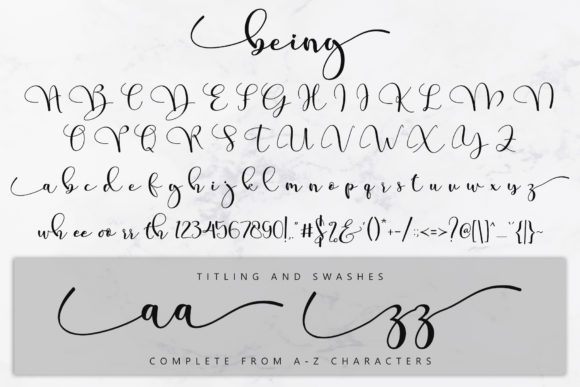 being
A B C D E F G H I J K L M N
O P Q R S T U V W X Y Z
a b c d e f g h i j k l m n o p q r s t u v w x y z
wh ee oo rr th 1234567890!,"#$%&'()*+-/:;<=>?@[\]^_`{|}~
TITLING AND SWASHES
aa zz
COMPLETE FROM A-Z CHARACTERS